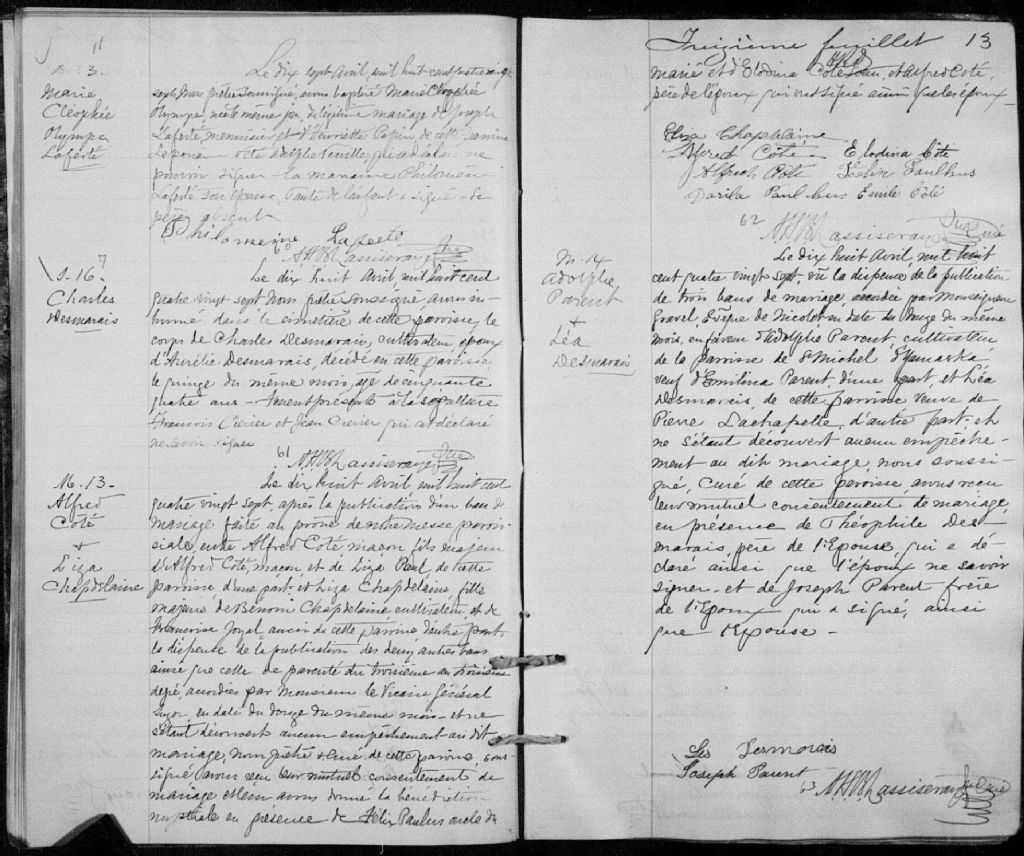 11
B. 13.
Marie
Cléophée
Olympe
Laferté
Le dix sept Avril, mil huit cent quatre vingt
sept Nous prêtre soussigné, avons baptisé Marie Cléophée
Olympe, née le même jour, du légitime mariage de Joseph
Laferté, menuisier et d'Henriette Pepin de cette paroisse
Le parrain a été Adolphe qui a déclaré ne
pouvoir signer la marraine Philomène
Laferté son épouse, Tante de l'enfant a signé - le
père absent
Philomeine Laferté
60
Ptre
S. 16
Charles
Desmarais
Le dix huit Avril, mil huit cent
quatre vingt sept Nous prêtre soussigné avons in-
humé dans le cimetière de cette paroisse, le
corps de Charles Desmarais, cultivateur époux
d'Aurélie Desmarais, décédé en cette paroisse
le quinze du même mois, âgé de cinquante
quatre ans - Furent présents à la sépulture
François Crevier et Jean Crevier qui ont déclaré
ne savoir signer
61
Ptre
M. 13-
Alfred
Coté
+
Liza
Chapdelaine
Le dix huit Avril, mil huit cent
quatre vingt sept, après la publication d'un ban de
mariage faite au prone de notre messe parois-
siale, entre Alfred Coté, maçon, fils majeur
d'Alfred Coté, maçon et de Liza Paul, de cette
paroisse, d'une part, et Liza Chapdelaine, fille
majeure de Benoni Chapdelaine cultivateur, et de
Françoise Joyal aussi de cette paroisse d'autre part,
la dispense de la publication des deux autres bans
ainsi que celle de parenté du troisième au troisième
degré, accordées par Monsieur le Vicaire Général
en date du douze du même mois - et ne
s'étant découvert aucun empêchement au dit
mariage, Nous Prêtre Curé de cette paroisse, sous-
signé avons reçu leur mutuel consentement de
mariage et leur avons donné la bénédiction
nuptiale en présence de Félix Paulus oncle du
Treizième feuillet 13
marié et d'Elodina Coté et Alfred Coté,
père de l'époux qui ont signé ainsi que les époux -
Eliza Chapdelaine
Alfred Coté Elodina Côté
Alfred Coté Felix Paulhus
Dorila Paul hus Emile Côté
62
M. 14
Adolphe
Parent
+
Léa
Desmarais
Le dix huit Avril, mil huit
cent quatre vingt sept, vu la dispense de la publication
de trois bans de mariage, accordée par Monseigneur
Gravel, Evêque de Nicolet en date du douze du même
mois, en faveur d'Adolphe Parent, cultivateur
de la paroisse de St Michel d'Yamaska
veuf d'Emilina Parent, d'une part, et Léa
Desmarais, de cette paroisse veuve de
Pierre Lachapelle, d'autre part, et
ne s'étant découvert aucun empêche-
ment au dit mariage, nous soussi-
gné, Curé de cette paroisse, avons reçu
leur mutuel consentement de mariage,
en présence de Théophile Des-
marais, père de l'Epouse, qui a dé-
claré ainsi que l'époux ne savoir
signer - et de Joseph Parent frère
de l'Epoux qui a signé, ainsi
que l'Epouse -
Desmorais
Joseph Parent
63